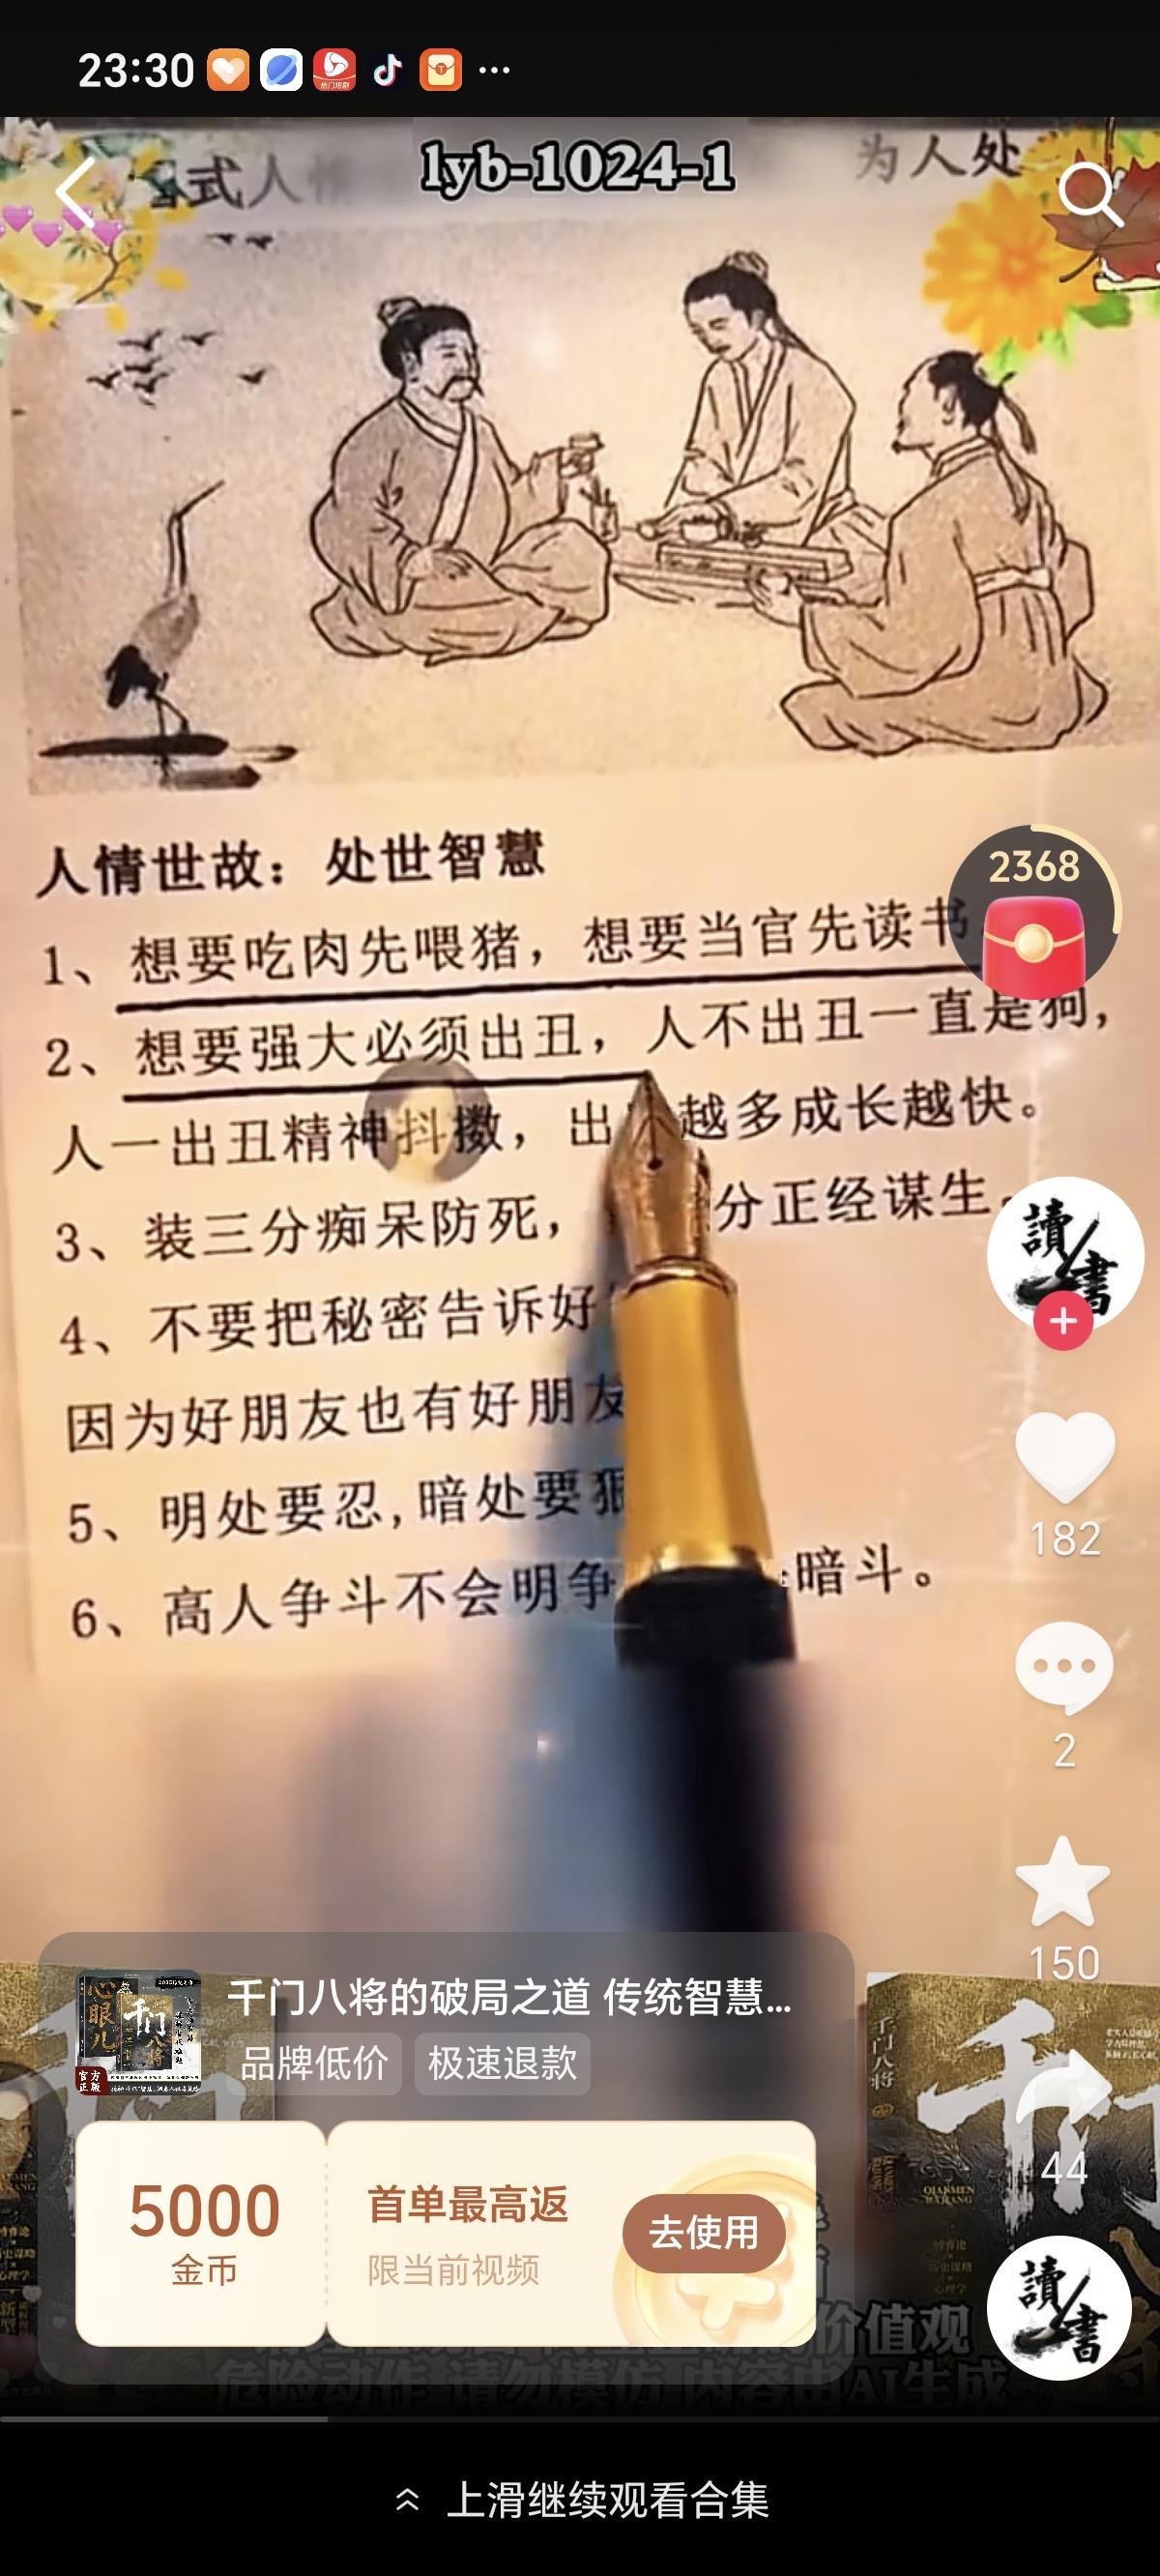 23:30
lyb-1024-1
式人情
为人处
人情世故：处世智慧
1、想要吃肉先喂猪，想要当官先读书
2368
2、想要强大必须出丑，人不出丑一直是狗，
人一出丑精神抖擞，出 越多成长越快。
3、装三分痴呆防死， 分正经谋生。
4、不要把秘密告诉好
因为好朋友也有好朋友
5、明处要忍,暗处要狠
6、高人争斗不会明争 暗斗。
讀書
182
2
150
44
千门八将的破局之道 传统智慧...
品牌低价 极速退款
心眼儿
千门八将
官方正版
千门八将
QIANMEN
BAJIANG
5000
金币
首单最高返
限当前视频
去使用
讀書
价值观
危险动作 请勿模仿 内容由AI生成
上滑继续观看合集